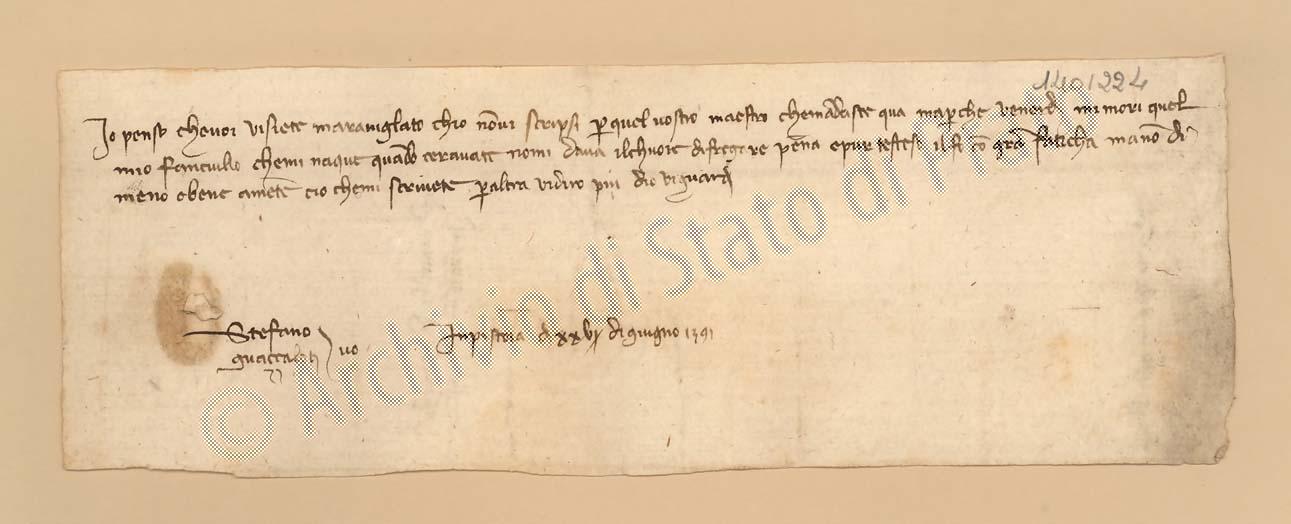 1401224
Io penso chevoi visiete maraviglato chio nōvi scripsi p quel vostro maestro chemādaste qua ma pche venerdi mi mori quel
mio fanciullo chemi naque quādo ceravate nomi dava ilchuore difregare pēna epur testeso il fo cō grā faticha
meno obene amēte cio chemi scrivete p altra vidiro piu dio vi guardi
Stefano
guazzalotti vo
Inpistoia dì xxvj digiugno 1391
© Archivio di Stato di